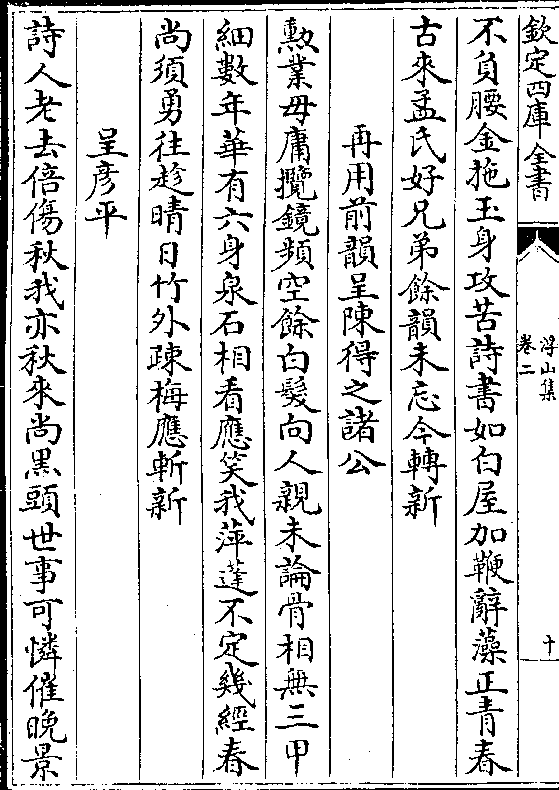 欽定四庫全書
浮山集
卷二
十
不負腰金拖玉身攻苦詩書如白屋加鞭辭藻正青春
古來孟氏好兄弟餘韻未忘今轉新
再用前韻呈陳得之諸公
勲業毋庸攬鏡頻空餘白髮向人親未論骨相無三甲
細數年華有六身泉石相看應笑我萍蓬不定幾經春
尚須勇往趁晴日竹外疎梅應斬新
呈彦平
詩人老去倍傷秋我亦秋來尚黒頭世事可憐催晚景